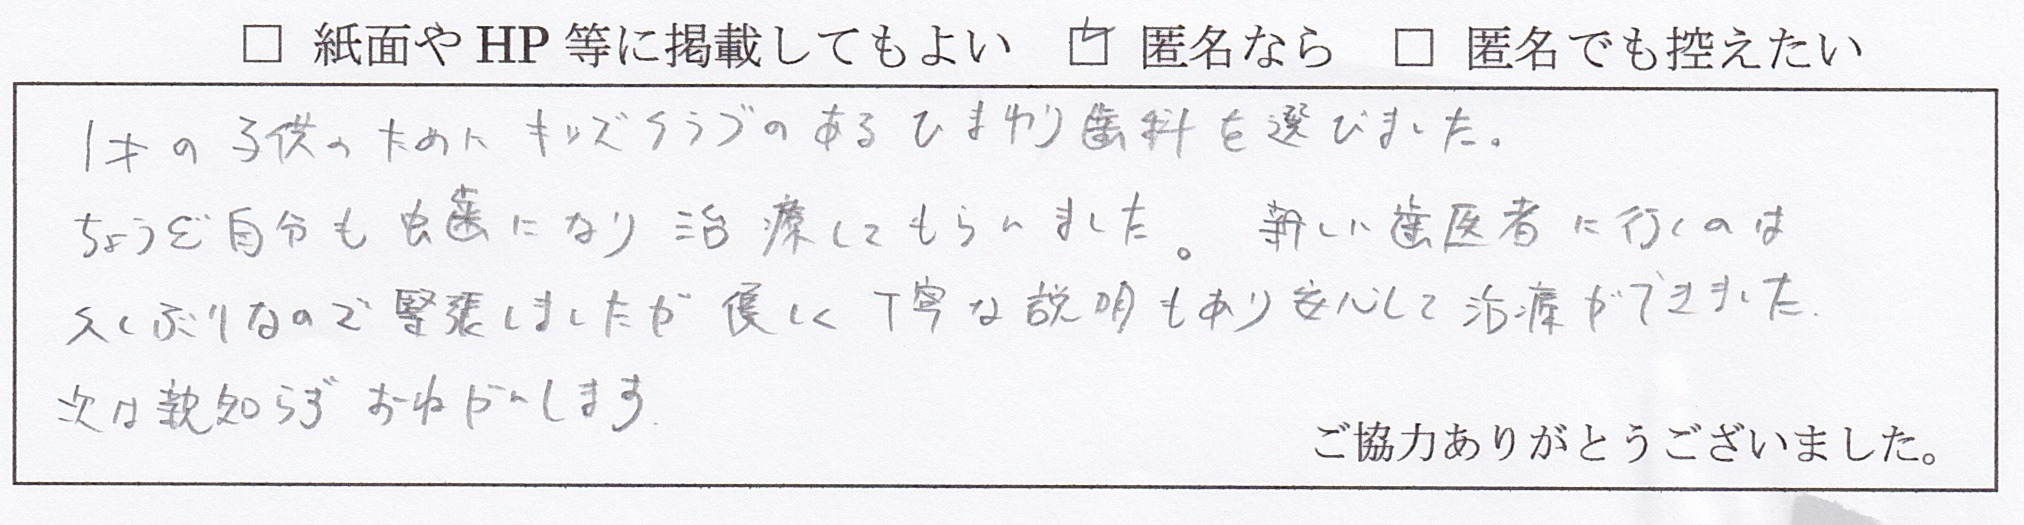 □ 紙面や HP 等に掲載してもよい ☑ 匿名なら □ 匿名でも控えたい
1才の子供のためにキッズクラブのあるひまわり歯科を選びました。
ちょうど自分も虫歯になり治療してもらいました。新しい歯医者に行くのは
久しぶりなので緊張しましたが優しく丁寧な説明もあり安心して治療ができました.
次は親知らずおねがいします.
ご協力ありがとうございました。